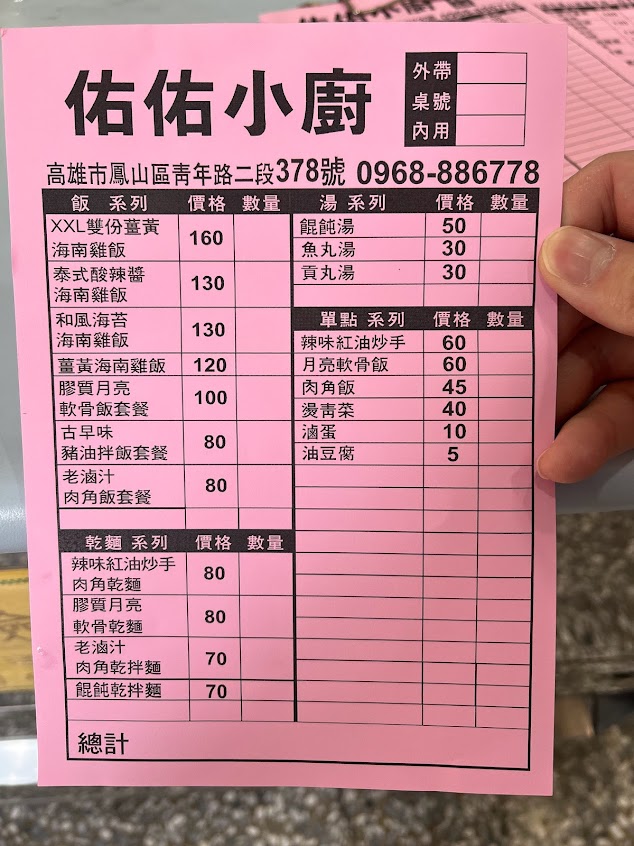 佑佑小廚
外帶
桌號
內用
高雄市鳳山區青年路二段378號 0968-886778
飯 系列 價格 數量
XXL雙份薑黃
海南雞飯 160
泰式酸辣醬
海南雞飯 130
和風海苔
海南雞飯 130
薑黃海南雞飯 120
膠質月亮
軟骨飯套餐 100
古早味
豬油拌飯套餐 80
老滷汁
肉角飯套餐 80
乾麵 系列 價格 數量
辣味紅油炒手
肉角乾麵 80
膠質月亮
軟骨乾麵 80
老滷汁
肉角乾拌麵 70
餛飩乾拌麵 70
湯 系列 價格 數量
餛飩湯 50
魚丸湯 30
貢丸湯 30
單點 系列 價格 數量
辣味紅油炒手 60
月亮軟骨飯 60
肉角飯 45
燙青菜 40
滷蛋 10
油豆腐 5
總計